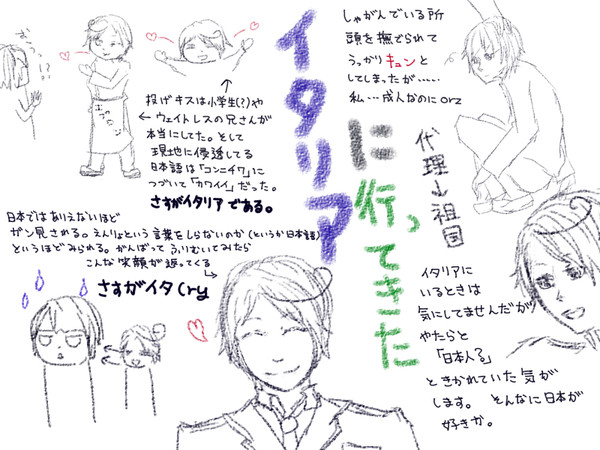 イタリア
に行ってきた
しゃがんでいる所
頭を撫でられて
うっかりキュンと
してしまったが……
私…成人なのにorz
代理→祖国
投げキスは小学生(?)や
ウェイトレスの兄さんが
本当にしてた。そして
現地に侵透してる
日本語は「コンニチワ」に
つづいて「カワイイ」だった。
さすがイタリアである。
日本ではありえないほど
ガン見される。えんりょという言葉をしらないのか(というか日本語)
というほどみられる。がんばってふりむいてみたら
こんな笑顔が返ってくる
さすがイタ(ry
イタリアに
いるときは
気にしてませんだが
やたらと
「日本人?」
ときかれていた気が
します。そんなに日本が
好きか。